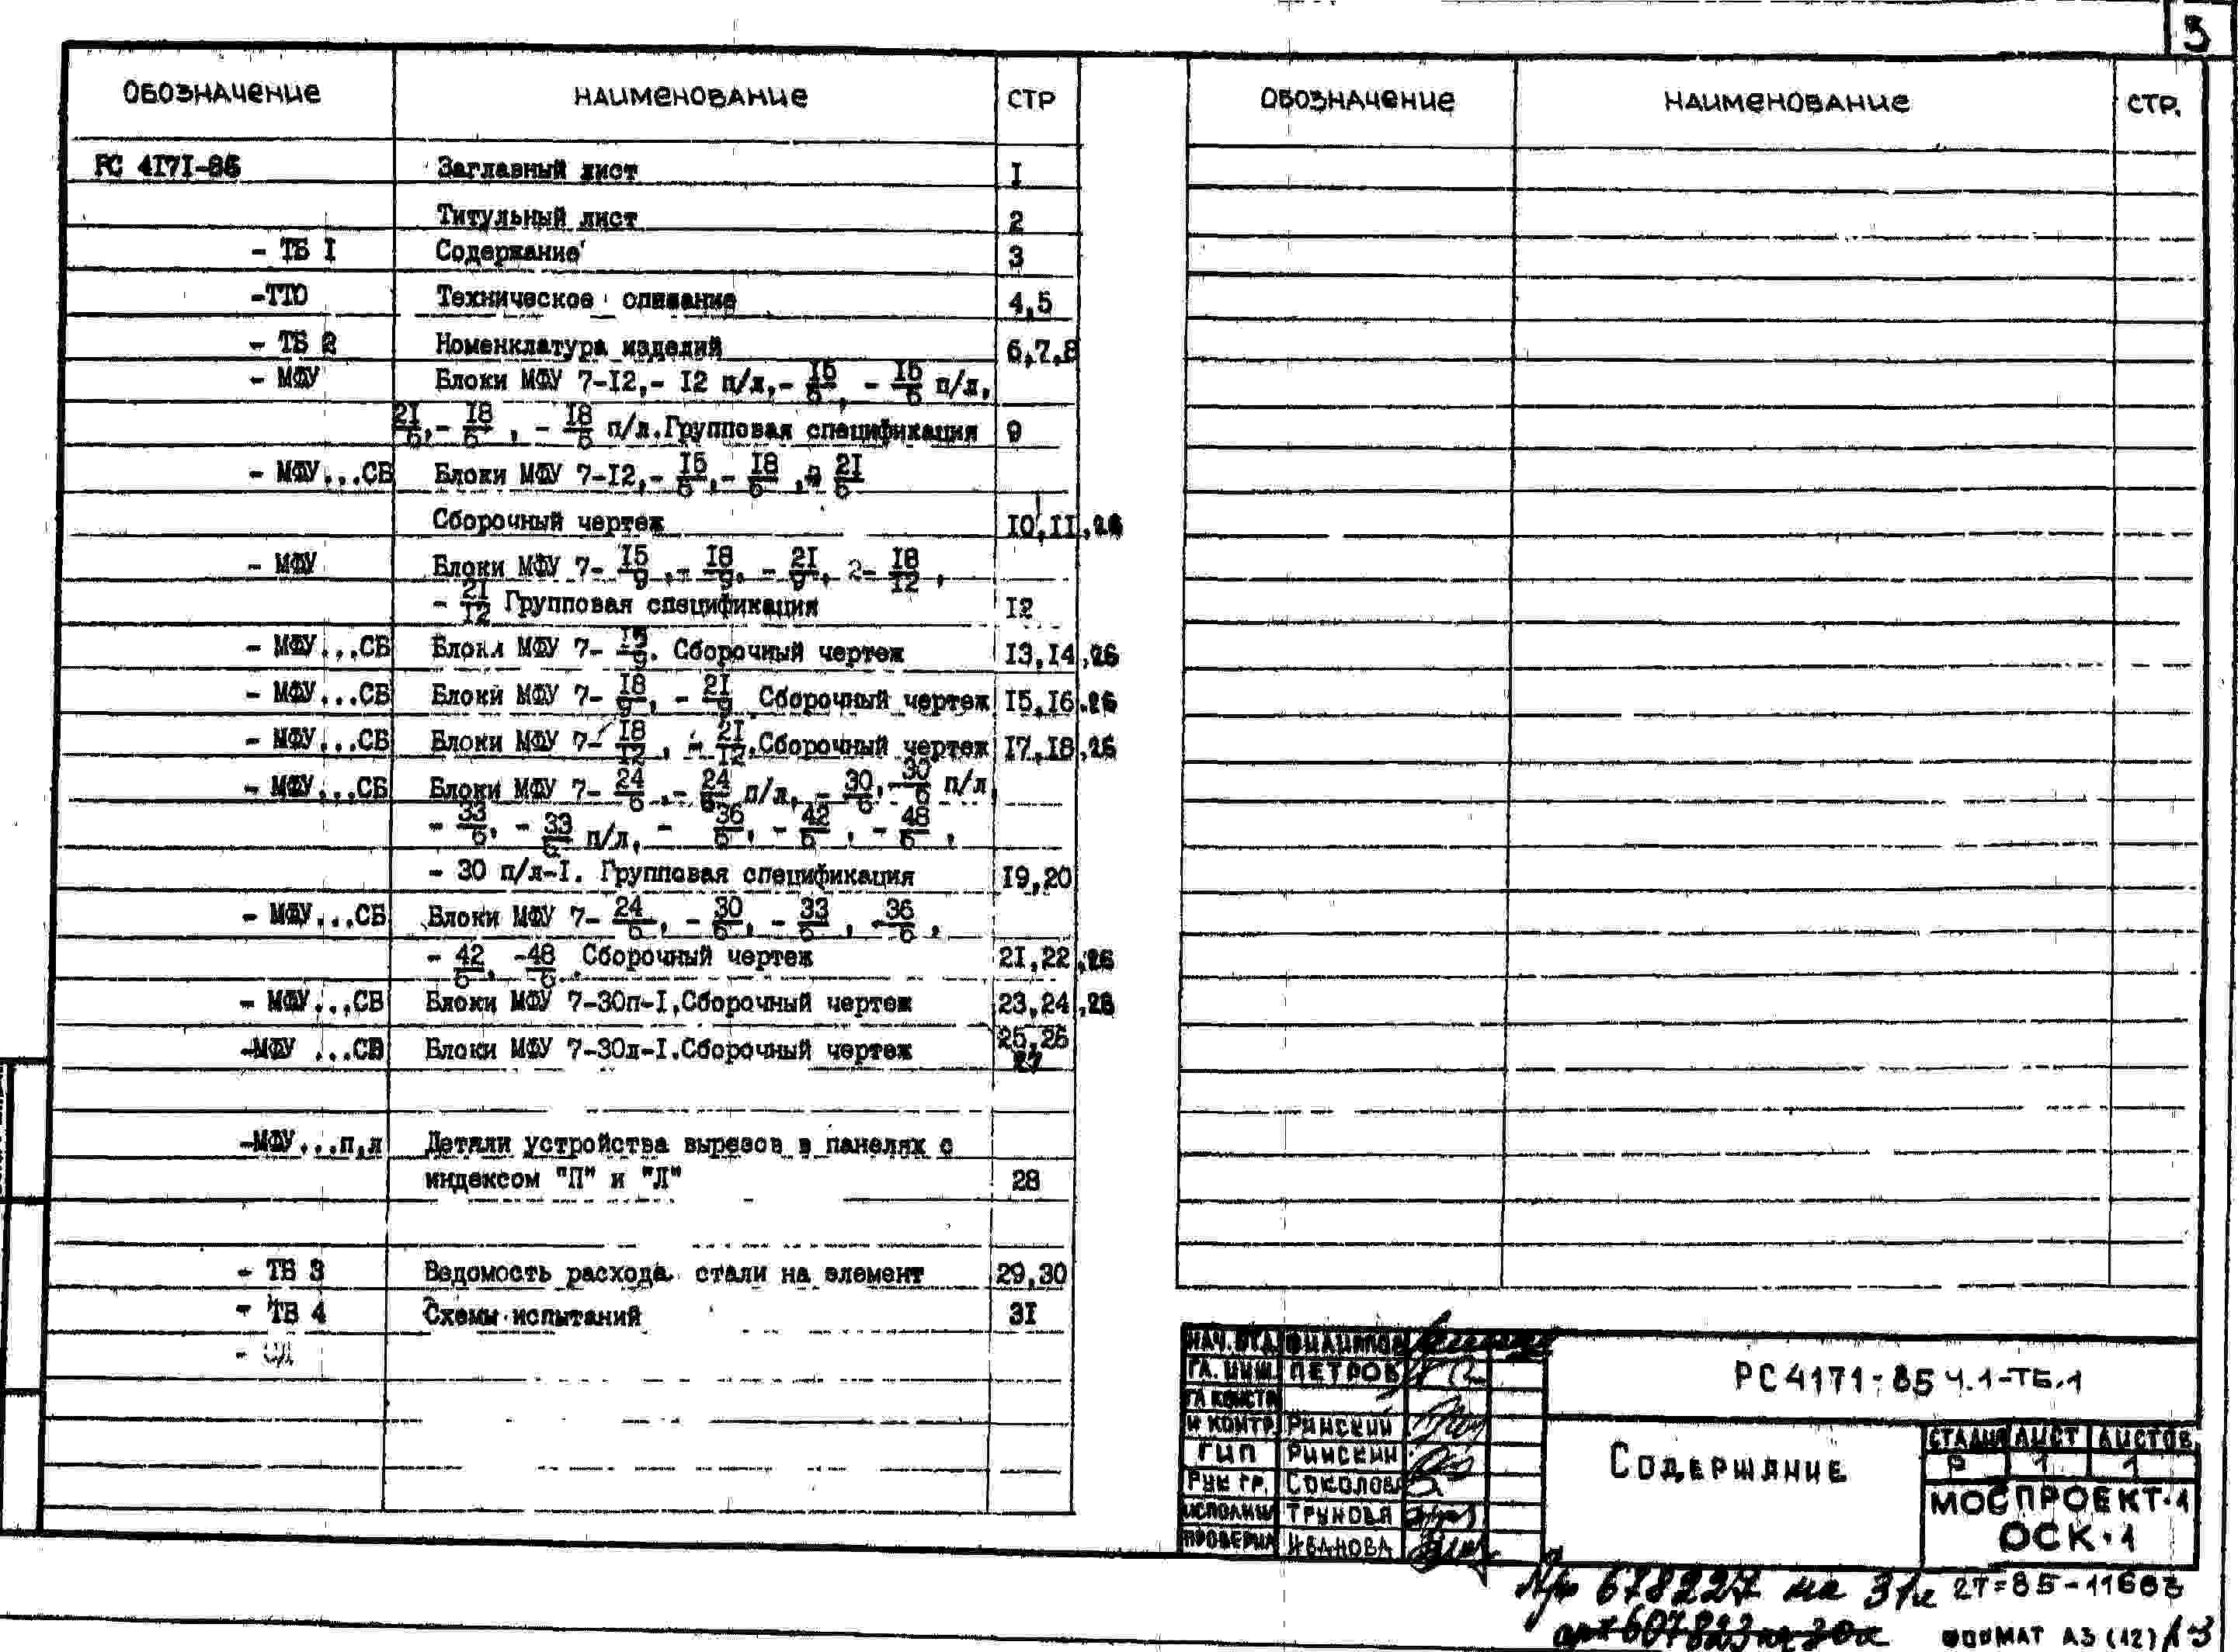 3
ОБОЗНАЧЕНИЕ НАИМЕНОВАНИЕ СТР ОБОЗНАЧЕНИЕ НАИМЕНОВАНИЕ СТР.
РС 4171-85 Заглавный лист 1
Титульный лист 2
- ТБ 1 Содержание 3
-ТТО Техническое описание 4,5
- ТБ 2 Номенклатура изделий 6,7,8
- МФУ Блоки МФУ 7-12,- 12 п/л,- 15/6, - 15/6 п/л,
21/6,- 18/6, - 18/6 п/л.Групповая спецификация 9
- МФУ...СБ Блоки МФУ 7-12,- 15/6,- 18/6, 21/6
Сборочный чертеж 10,11,26
- МФУ Блоки МФУ 7- 15/9,- 18/9, - 21/9, 2- 18/12,
- 21/12 Групповая спецификация 12
- МФУ...СБ Блоки МФУ 7- 15/9. Сборочный чертеж 13,14,26
- МФУ...СБ Блоки МФУ 7- 18/9, - 21/9 Сборочный чертеж 15,16,26
- МФУ...СБ Блоки МФУ 7- 18/12, - 21/12.Сборочный чертеж 17,18,26
- МФУ...СБ Блоки МФУ 7- 24/6,- 24/6 п/л, - 30/6,- 30/6 п/л
- 33/6, - 33/6 п/л, - 36/6, - 42/6, - 48/6,
- 30 п/л-1. Групповая спецификация 19,20
- МФУ...СБ Блоки МФУ 7- 24/6, - 30/6, - 33/6, -36/6,
- 42/6, -48/6. Сборочный чертеж 21,22,26
- МФУ...СБ Блоки МФУ 7-30п-1,Сборочный чертеж 23,24,26
-МФУ ...СБ Блоки МФУ 7-30л-1.Сборочный чертеж 25,26
27
-МФУ...п,л Детали устройства вырезов в панелях с
индексом "П" и "Л" 28
- ТБ 3 Ведомость расхода стали на элемент 29,30
- ТБ 4 Схемы испытаний 31
НАЧ.ОТД. ФИЛИППОВ
ГЛ. ИНЖ. ПЕТРОВ
ГЛ КОНСТР
Н КОНТР. РИНСКИЙ
ГИП РИНСКИЙ
РУК ГР. СОКОЛОВА
ИСПОЛНИЛ ТРУНОВА
ПРОВЕРИЛ ИВАНОВА
РС 4171-85 Ч.1-ТБ.1
СОДЕРЖАНИЕ
СТАДИЯ ЛИСТ ЛИСТОВ
Р 1 1
МОСПРОЕКТ-1
ОСК-1
678227 на 31л 27=85-11663
607823 на 30л ФОРМАТ А3 (12) А-3